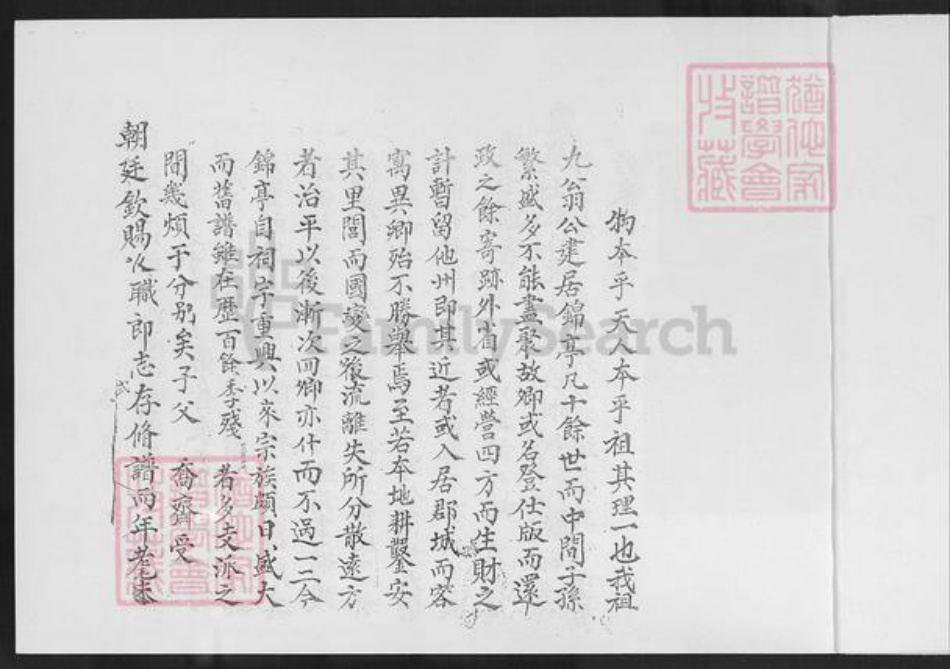 物本乎天人本乎祖其理一也我祖
九翁公建居錦亭凡十餘世而中間子孫
繁盛多不能盡聚故鄉或名登仕版而還
政之餘寄跡外省或經營四方而生財之
計暫留他州即其近者或入居郡城而客
寓異鄉殆不勝舉焉至若本地耕鑿安
其里閭而國變之後流離失所分散遠方
者治平以後漸次回鄉亦什而不過一二今
錦亭自祠宇重興以來宗族頗日盛大
而舊譜雖在歷百餘季殘 者多支派之
間幾煩于分別矣子父 喬齋受
朝廷欽賜以職即志存脩譜而年老
譜學會
收藏
FamilySearch